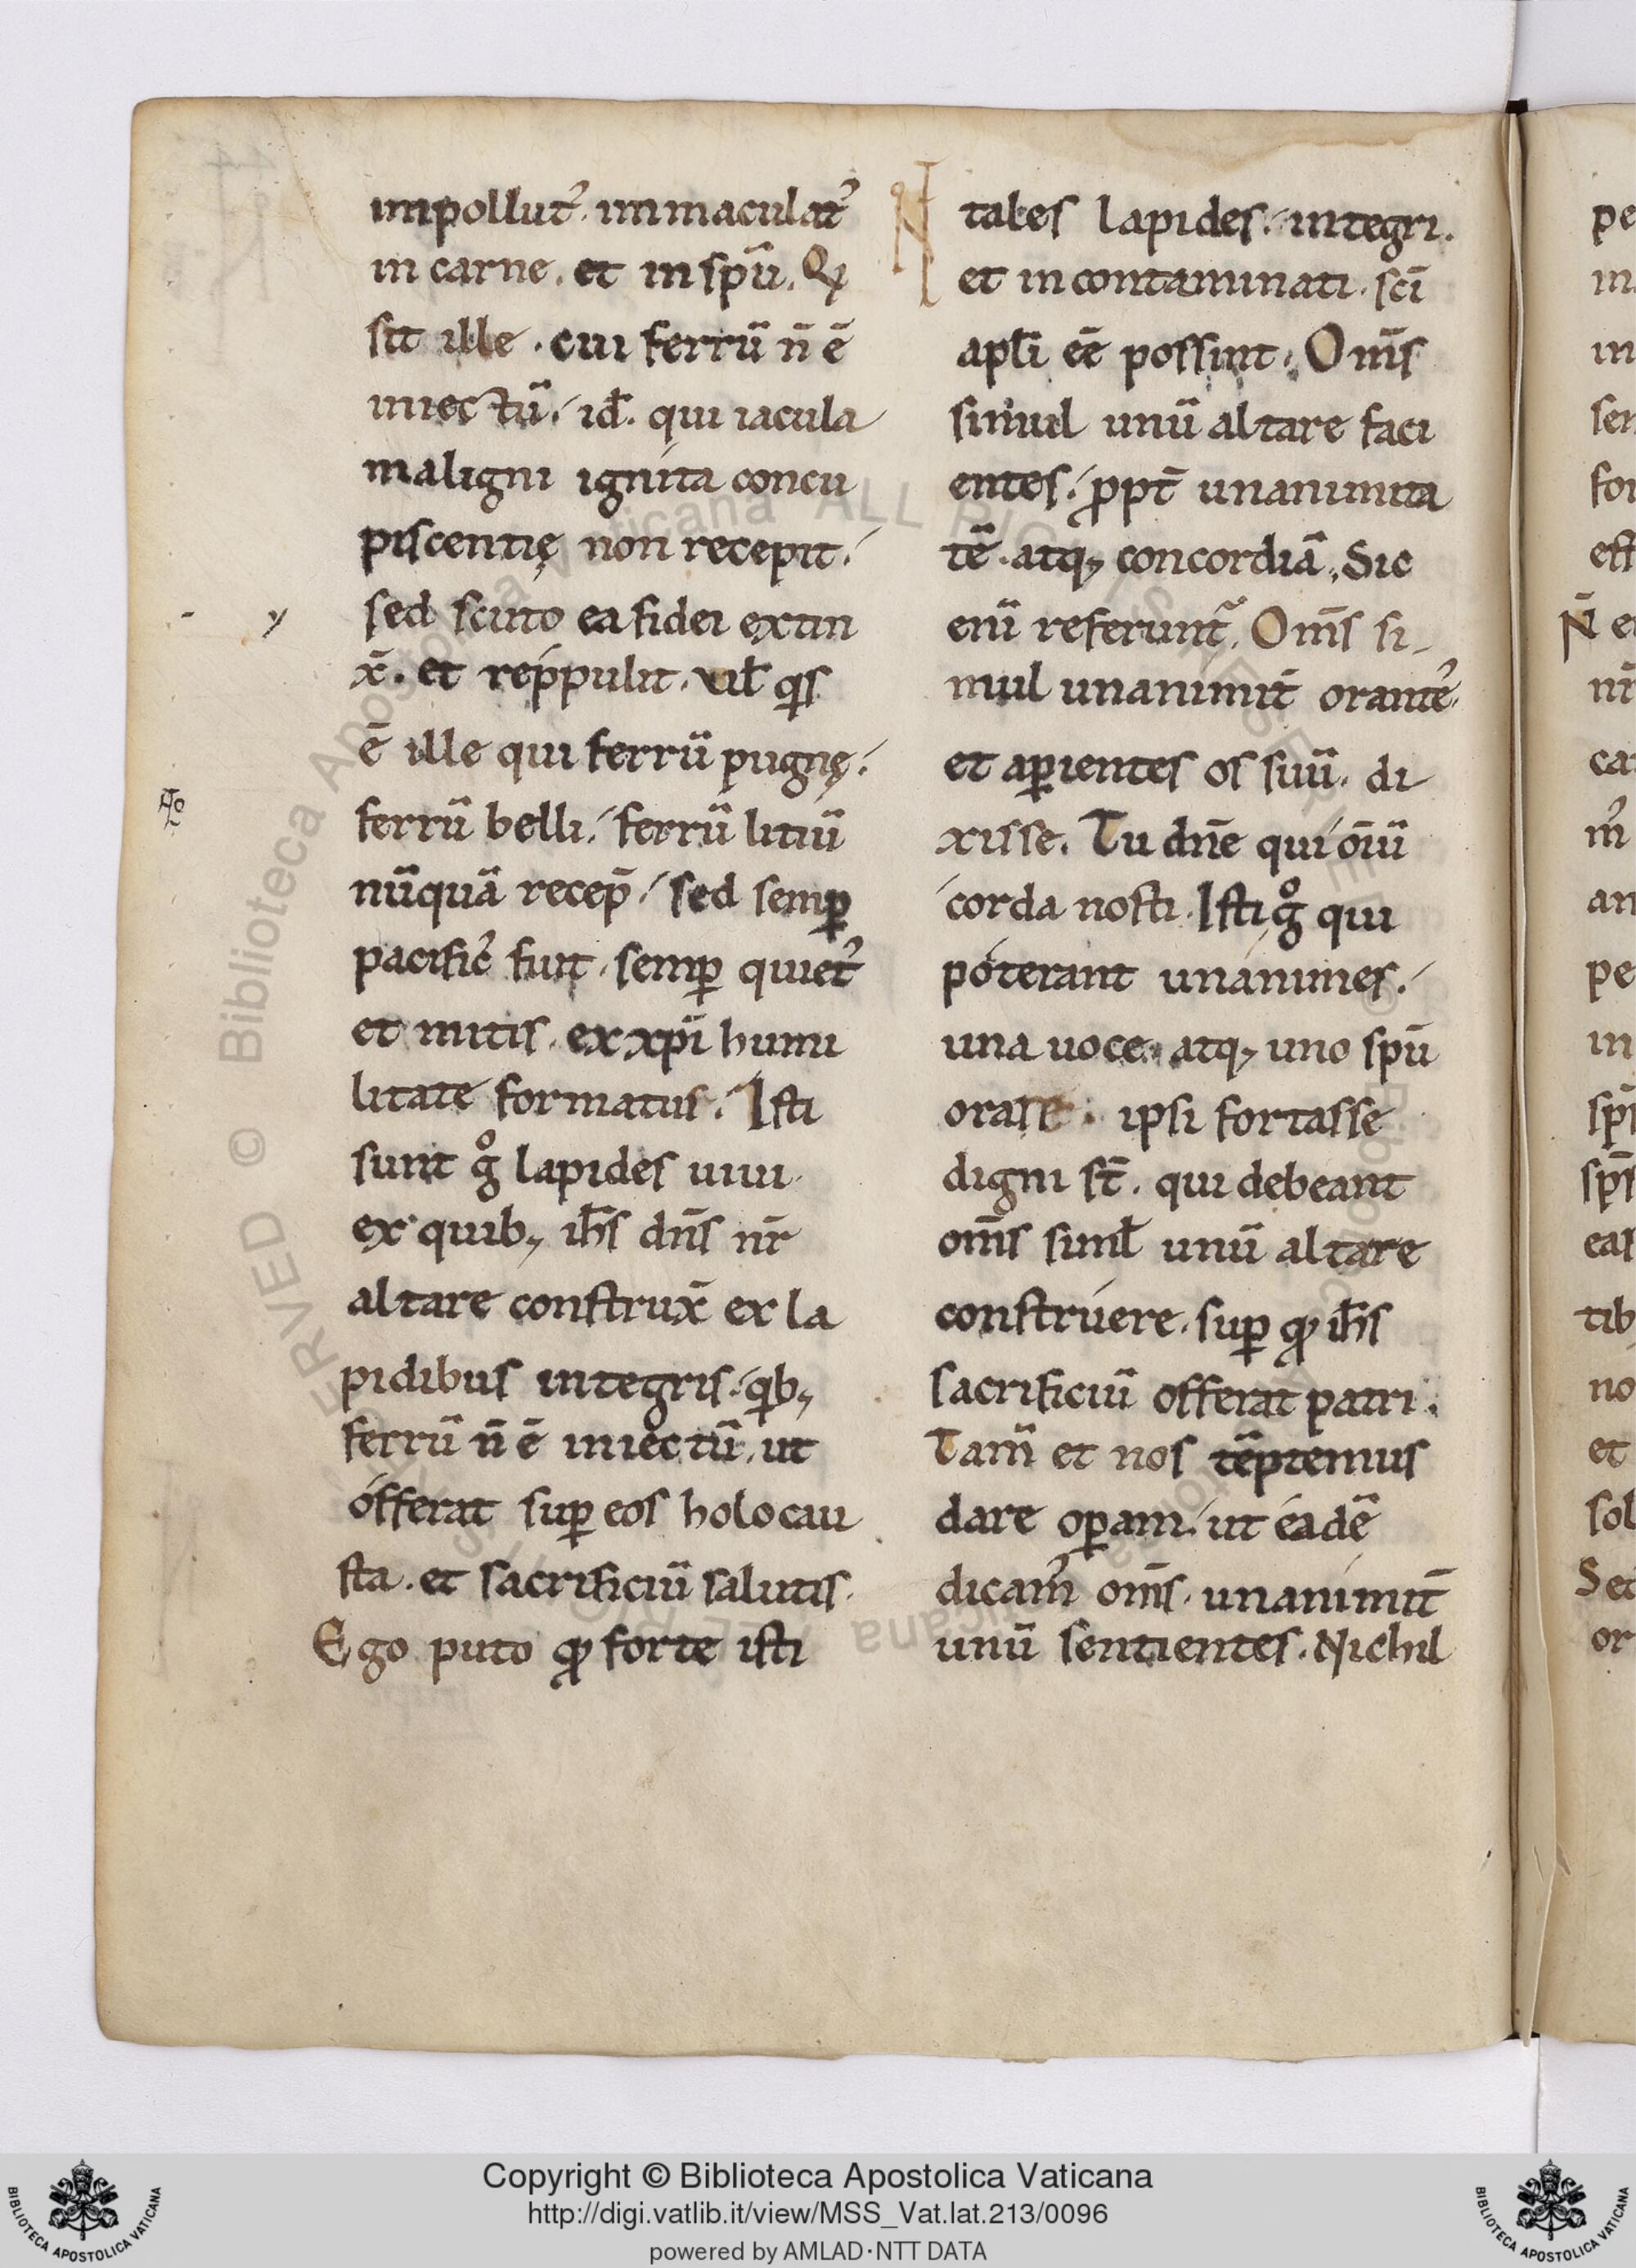 impollut᷒. immaculat᷒
in carne. et in spū. Q̨
sit ille. cui ferrū n̄ ē
iniectū. id̄. qui iacula
maligni ignita concu
piscentię non recepit.
sed scuto ea fidei extin
x̄. et reppulit. vel̄ qs
ē ille qui ferrū pugnę.
ferrū belli. ferrū litiū
nūquā recep̄. sed semꝑ
pacific᷒ fuit. semꝑ quiet᷒
et mitis. ex xp̄i humi
litate formatus. Isti
sunt gͦ lapides uiui.
ex quib; ih̄s dn̄s nr̄
altare construx̄ ex la
pidibus integris. qͥb;
ferrū n̄ ē iniectū. ut
offerat suꝑ eos holocau
sta. et sacrificiū salutis.
Ego puto qͩ forte isti
tales lapides. integri.
et incontaminati. sc̄i
apl̄i eē possint. Om̄s
simul unū altare faci
entes. ꝓpt̄ unanimita
tē. atq; concordiā. Sic
enī referunt᷑. Om̄s si-
mul unanimit̄ orante᷒.
et aꝑientes os suū. di
xisse. Tu dn̄e qui oīū
corda nosti. Isti gͦ qui
poterant unanimes.
una uoce. atq; uno spū
orare. ipsi fortasse
digni st̄. qui debeant
om̄s siml̄ unū altare
construere. suꝑ qͩ ih̄s
sacrificiū offerat patri.
Tam̄ et nos tēptemus
dare oꝑam. ut eadē
dicam᷒ om̄s. unanimit̄
unū sentientes. Nichil
Copyright © Biblioteca Apostolica Vaticana
http://digi.vatlib.it/view/MSS_Vat.lat.213/0096
powered by AMLAD·NTT DATA
BIBLIOTECA APOSTOLICA VATICANA
BIBLIOTECA APOSTOLICA VATICANA